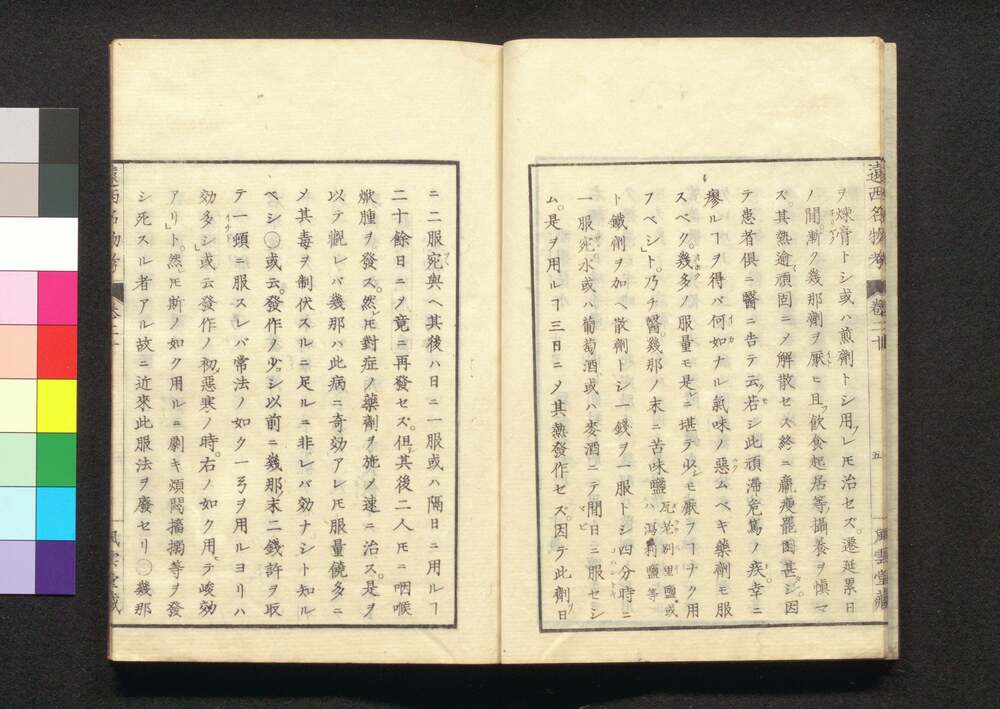 遠西名物考 卷二十 五 風雲堂藏
ヲ煉膏トシ或ハ煎劑トシ用フレ𪜈治セズ遷延累日
ノ間漸ク幾那劑ヲ厭ヒ且ツ飲食起居等ノ攝養ヲ愼マ
ズ其熱逾頑固ニ〆解散セズ終ニ羸瘦罷困甚シ因
テ患者俱ニ醫ニ告テ云若シ此頑滞危篤ノ疾幸ニ
瘳ルヿヲ得バ何如ナル氣味ノ惡ムベキ藥劑モ服
スベク幾多ノ服量モ是ニ堪テ少シモ厭フヿナク用
フベシ」ト乃チ醫幾那ノ末ニ苦味鹽瓦老別里鹽或ハ瀉利鹽等
ト鐵劑ヲ加ヘ散劑トシ一錢ヲ一服トシ四分時ニ
一服宛水或ハ葡萄酒或ハ麥酒ニテ間日ニ服セシ
ム是ヲ用ルヿ三日ニ〆其熱發作セズ因テ此劑日
ニ二服宛與ヘ其後ハ日ニ一服或ハ隔日ニ用ルヿ
二十餘日ニ〆竟ニ再發セズ但其後二人𪜈ニ咽喉
焮腫ヲ發ス然レ𪜈對症ノ藥劑ヲ施〆速ニ治ス是ヲ
以テ觀レバ幾那ハ此病ニ奇効アレ𪜈服量饒多ニ
〆其毒ヲ制伏スルニ足ルニ非レバ効ナシト知ル
ベシ〇或云發作ノ少シ以前ニ幾那末二錢許ヲ取
テ一頓ニ服スレバ常法ノ如ク一弓ヲ用ルヨリハ
効多シ」或云發作ノ初惡寒ノ時右ノ如ク用テ峻効
アリ」ト然𪜈斯ノ如ク用ルニ劇キ煩悶搐搦等ヲ發
シ死スル者アル故ニ近來此服法ヲ廢セリ〇幾那